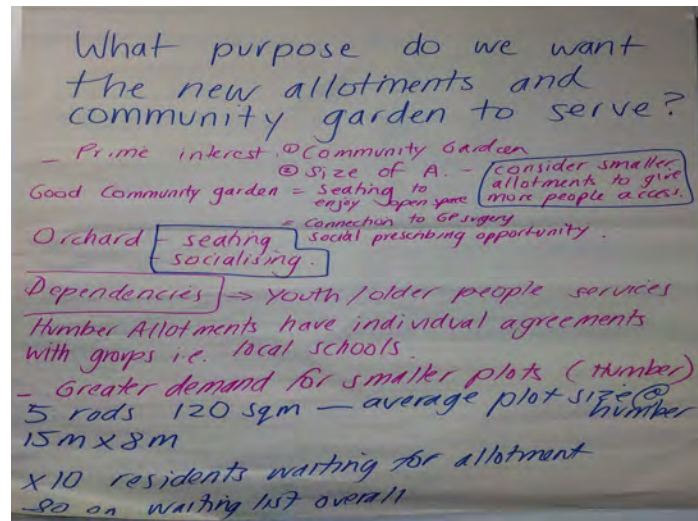 What purpose do we want
the new allotments and
community garden to serve?
- Prime interest. ① Community Garden
② Size of A. - consider smaller
allotments to give
more people access.
Good Community garden = seating to
enjoy open space
= Connection to GP surgery
social prescribing opportunity.
Orchard - seating
- socialising.
Dependencies => Youth/older people services
Humber Allotments have individual agreements
with groups i.e. local schools.
- Greater demand for smaller plots (Humber)
5 rods 120 sqm - average plot size @
Humber
15m x 8m
x10 residents waiting for allotment
on waiting list overall